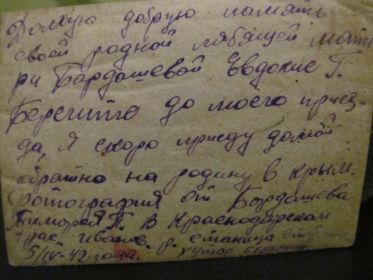 Долгую добрую память
своей родной любящей мате
ри Бардашевой Евдокие Г.
Берегите до моего приез-
да, я скоро приеду домой
обратно на родину в крым.
Фотография от Бардашева
Тимофея П. В Краснодарском
крае р. станица
5/IV-43 года. хутор